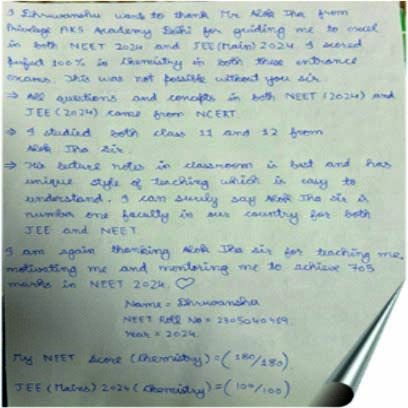 I Dhruwanshu want to thank Mr Alok Jha from
Privilege AKS Academy Delhi for guiding me to excel
in both NEET 2024 and JEE (Main) 2024 I scored
perfect 100% in Chemistry in both these entrance
exams. This was not possible without you sir.
⇒ All questions and concepts in both NEET (2024) and
JEE (2024) came from NCERT
⇒ I studied both class 11 and 12 from
Alok Jha Sir
⇒ His lecture notes in classroom is best and has
unique style of teaching which is easy to
understand. I can surely say Alok Jha sir is
number one faculty in our country for both
JEE and NEET
I am again thanking Alok Jha sir for teaching me,
motivating me and mentoring me to achieve 705
marks in NEET 2024. ♡
Name = Dhruwanshu
NEET Roll No = 2305040469
Year = 2024
My NEET Score (Chemistry) = (180/180)
JEE (Mains) 2024 (Chemistry) = (100/100)